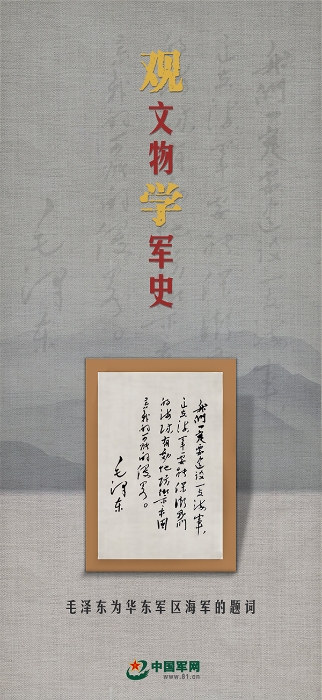 观文物学军史
我們一定要建设一支海军，
这支海军要能保衛我们
的海防，有効地防禦帝国
主義的可能的侵略。
毛泽东
毛泽东为华东军区海军的题词
中国军网
www.81.cn